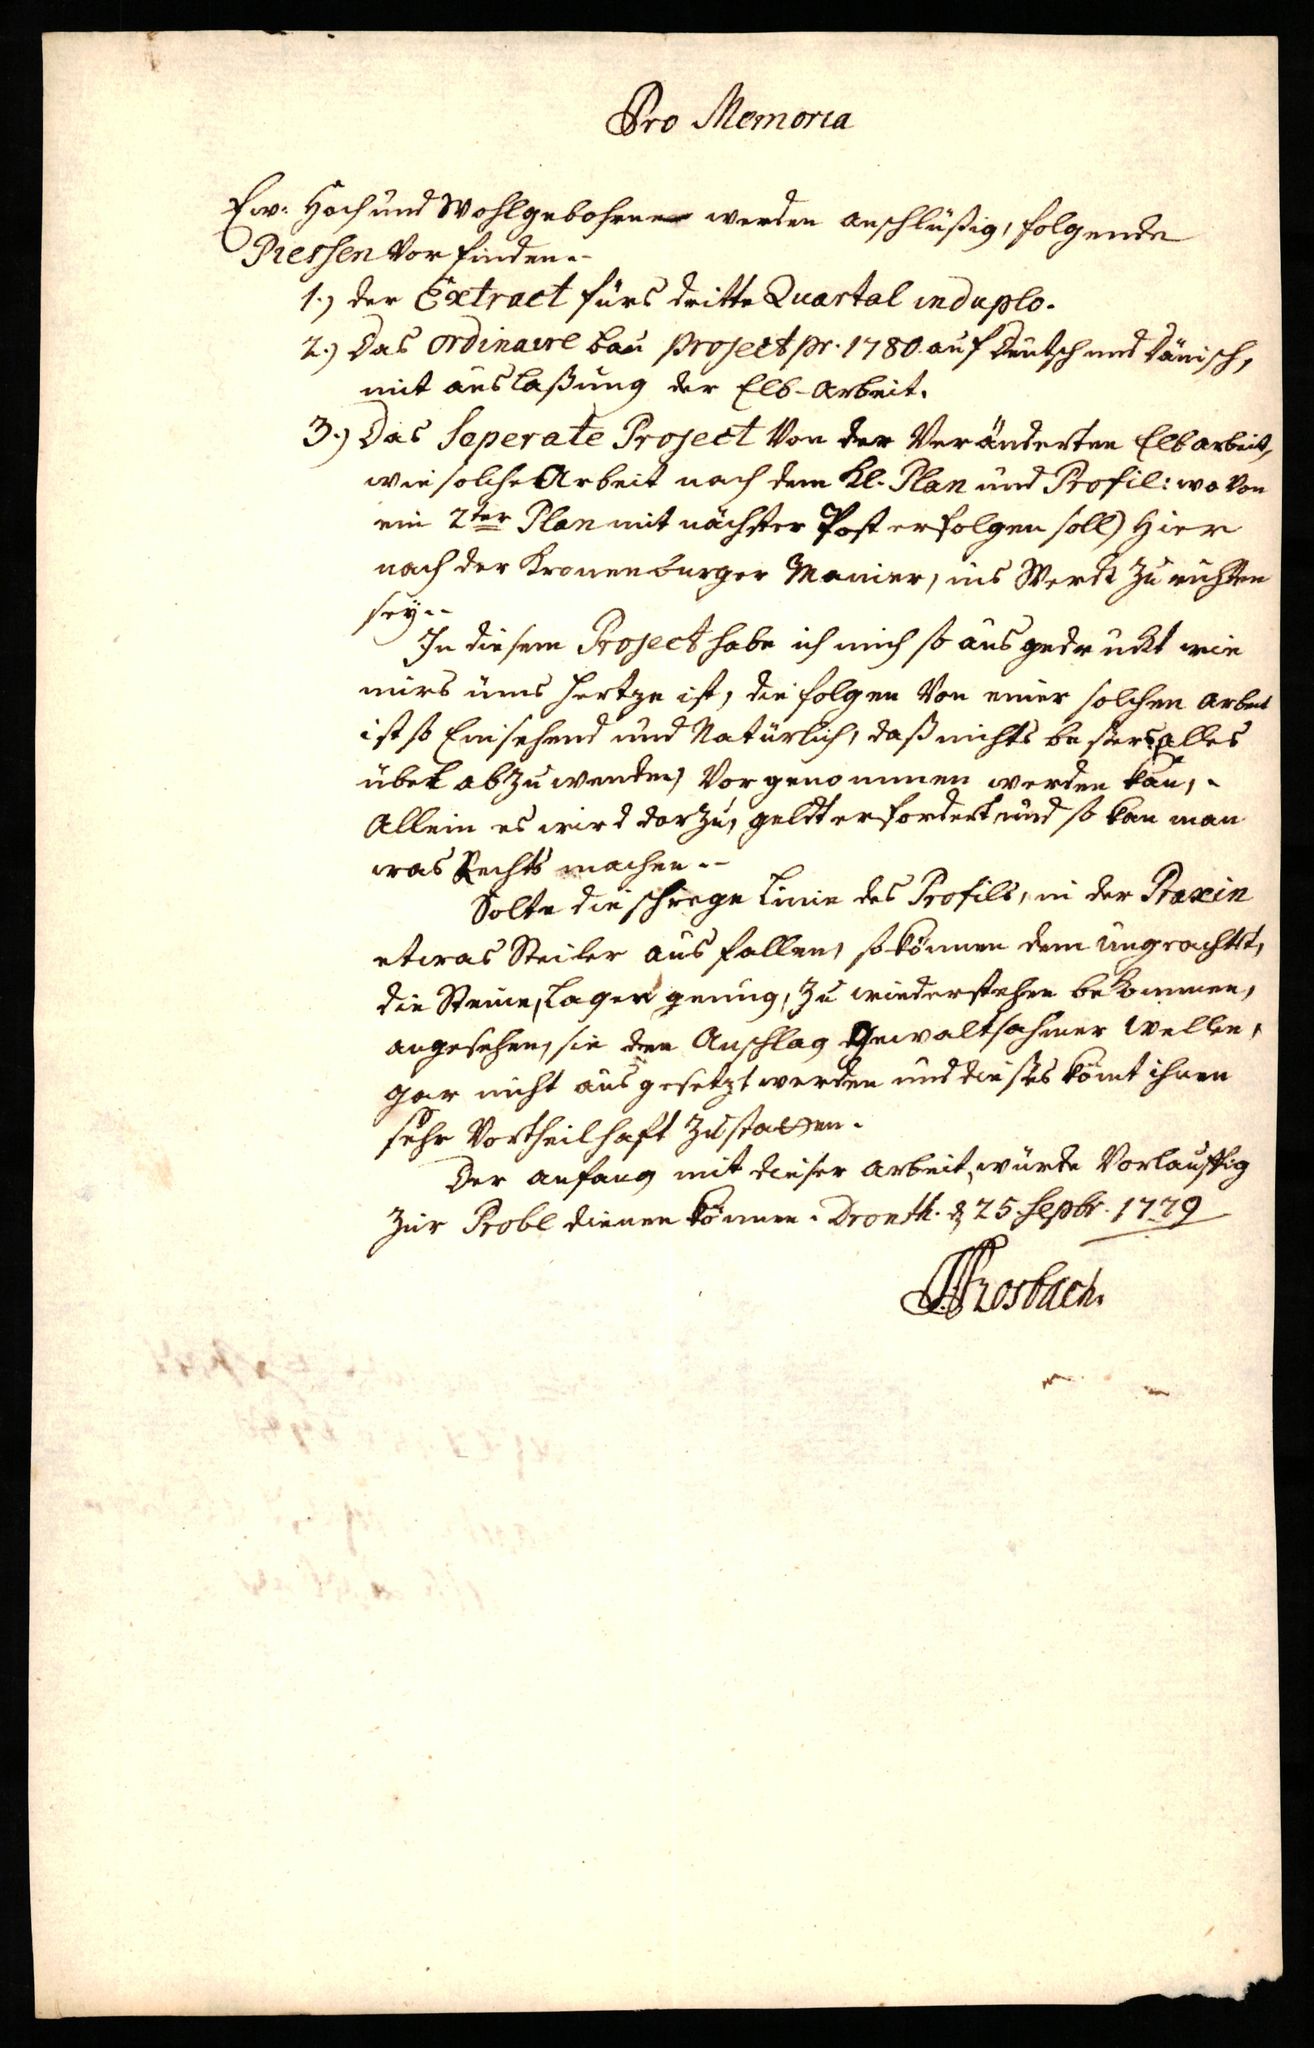 Pro Memoria
Ew. Hoch und Wohlgebohrne werden anschlüßig, folgende
Piessen Vorfinden..
1.) der Extract fürs dritte Quartal in duplo.
2.) Das ordinaire bau project pr. 1780. auf Deutsch und Dänisch,
mit auslaßung der Elb-Arbeit.
3.) Das Seperate Project Von der Veränderten Elb arbeit,
wie solche Arbeit nach dem Kl. Plan und Profil: wo Von
ein 2ter Plan mit nächster Post erfolgen soll) Hier
nach der Kronenburger Manier, ins Werck zu richten
sey..
In diesem Project habe ich mich so ausgedruckt wie
mirs ums Hertze ist, die folgen Von einer solchen Arbeit
ist so Einsehend und Natürlich, daß nichts bessers, alles
übel abzuwenden, Vorgenommen werden kan,.
Allein es wird darzu, geldt erfordert und so kan man
was Rechts machen..
Solte die schrege Linie des Profils, in der Praxin
etwas Steiler ausfallen, so können dem ungeachtet,
die Steine, Lager genug, zu wiederstehen bekommen,
angesehen, sie den Anschlag Gewaltsahmer Wellen,
gar nicht ausgesetzt werden und dieses kömt ihnen
sehr Vortheilhaft zustatten.
Der anfang mit dieser Arbeit, würde Vorlauffig
zur Probe dienen können. Dronth. d 25. Septbr. 1779
Frosbach.